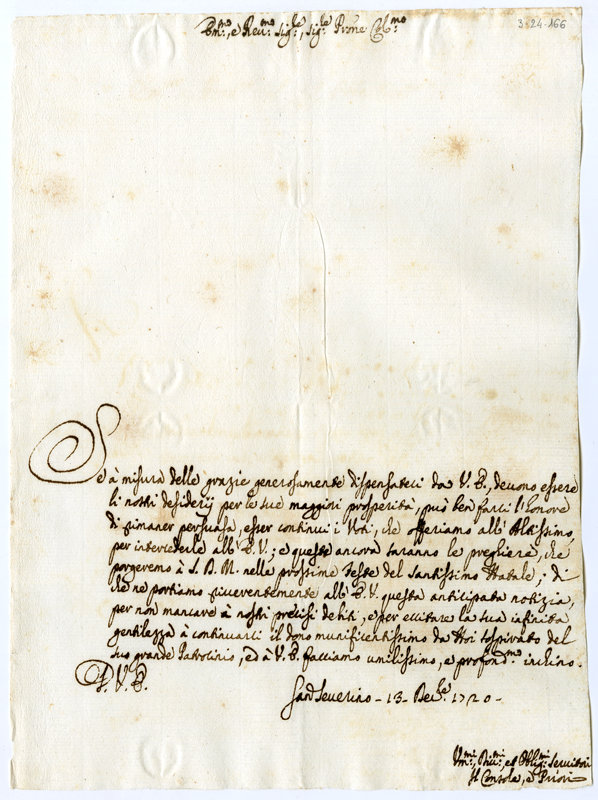 3-24-166
Em:mo, e Reu:mo Sig:re, Sig:re Prõne Col:mo
Se à misura delle grazie generosamente dispensateci da V. E., deuono essere
li nostri desiderij per le sue maggiori prosperità, può ben farci l'honore
di rimaner persuasa, esser continui i Voti, che offeriamo all'Altissimo,
per intercederle all'E. V.; e queste ancora saranno le preghiere, che
porgeremo à S. D. M. nelle prossime Feste del Santissimo Natale; di
che ne portiamo riuerentemente all'E. V. questa anticipata notizia,
per non mancare à nostri precisi debiti, e per eccitare la sua infinita
gentilezza à continuarci il dono munificentissimo da Noi sospirato del
suo grande Patrocinio, ed à V. E. facciamo umilissimo, e profond:mo inchino.
D. V. E.
San Seuerino - 13 - Dec:bre 1720 -
Vm:mi, Diu:mi, ed Oblig:mi Seruitori
Il Console, e Priori